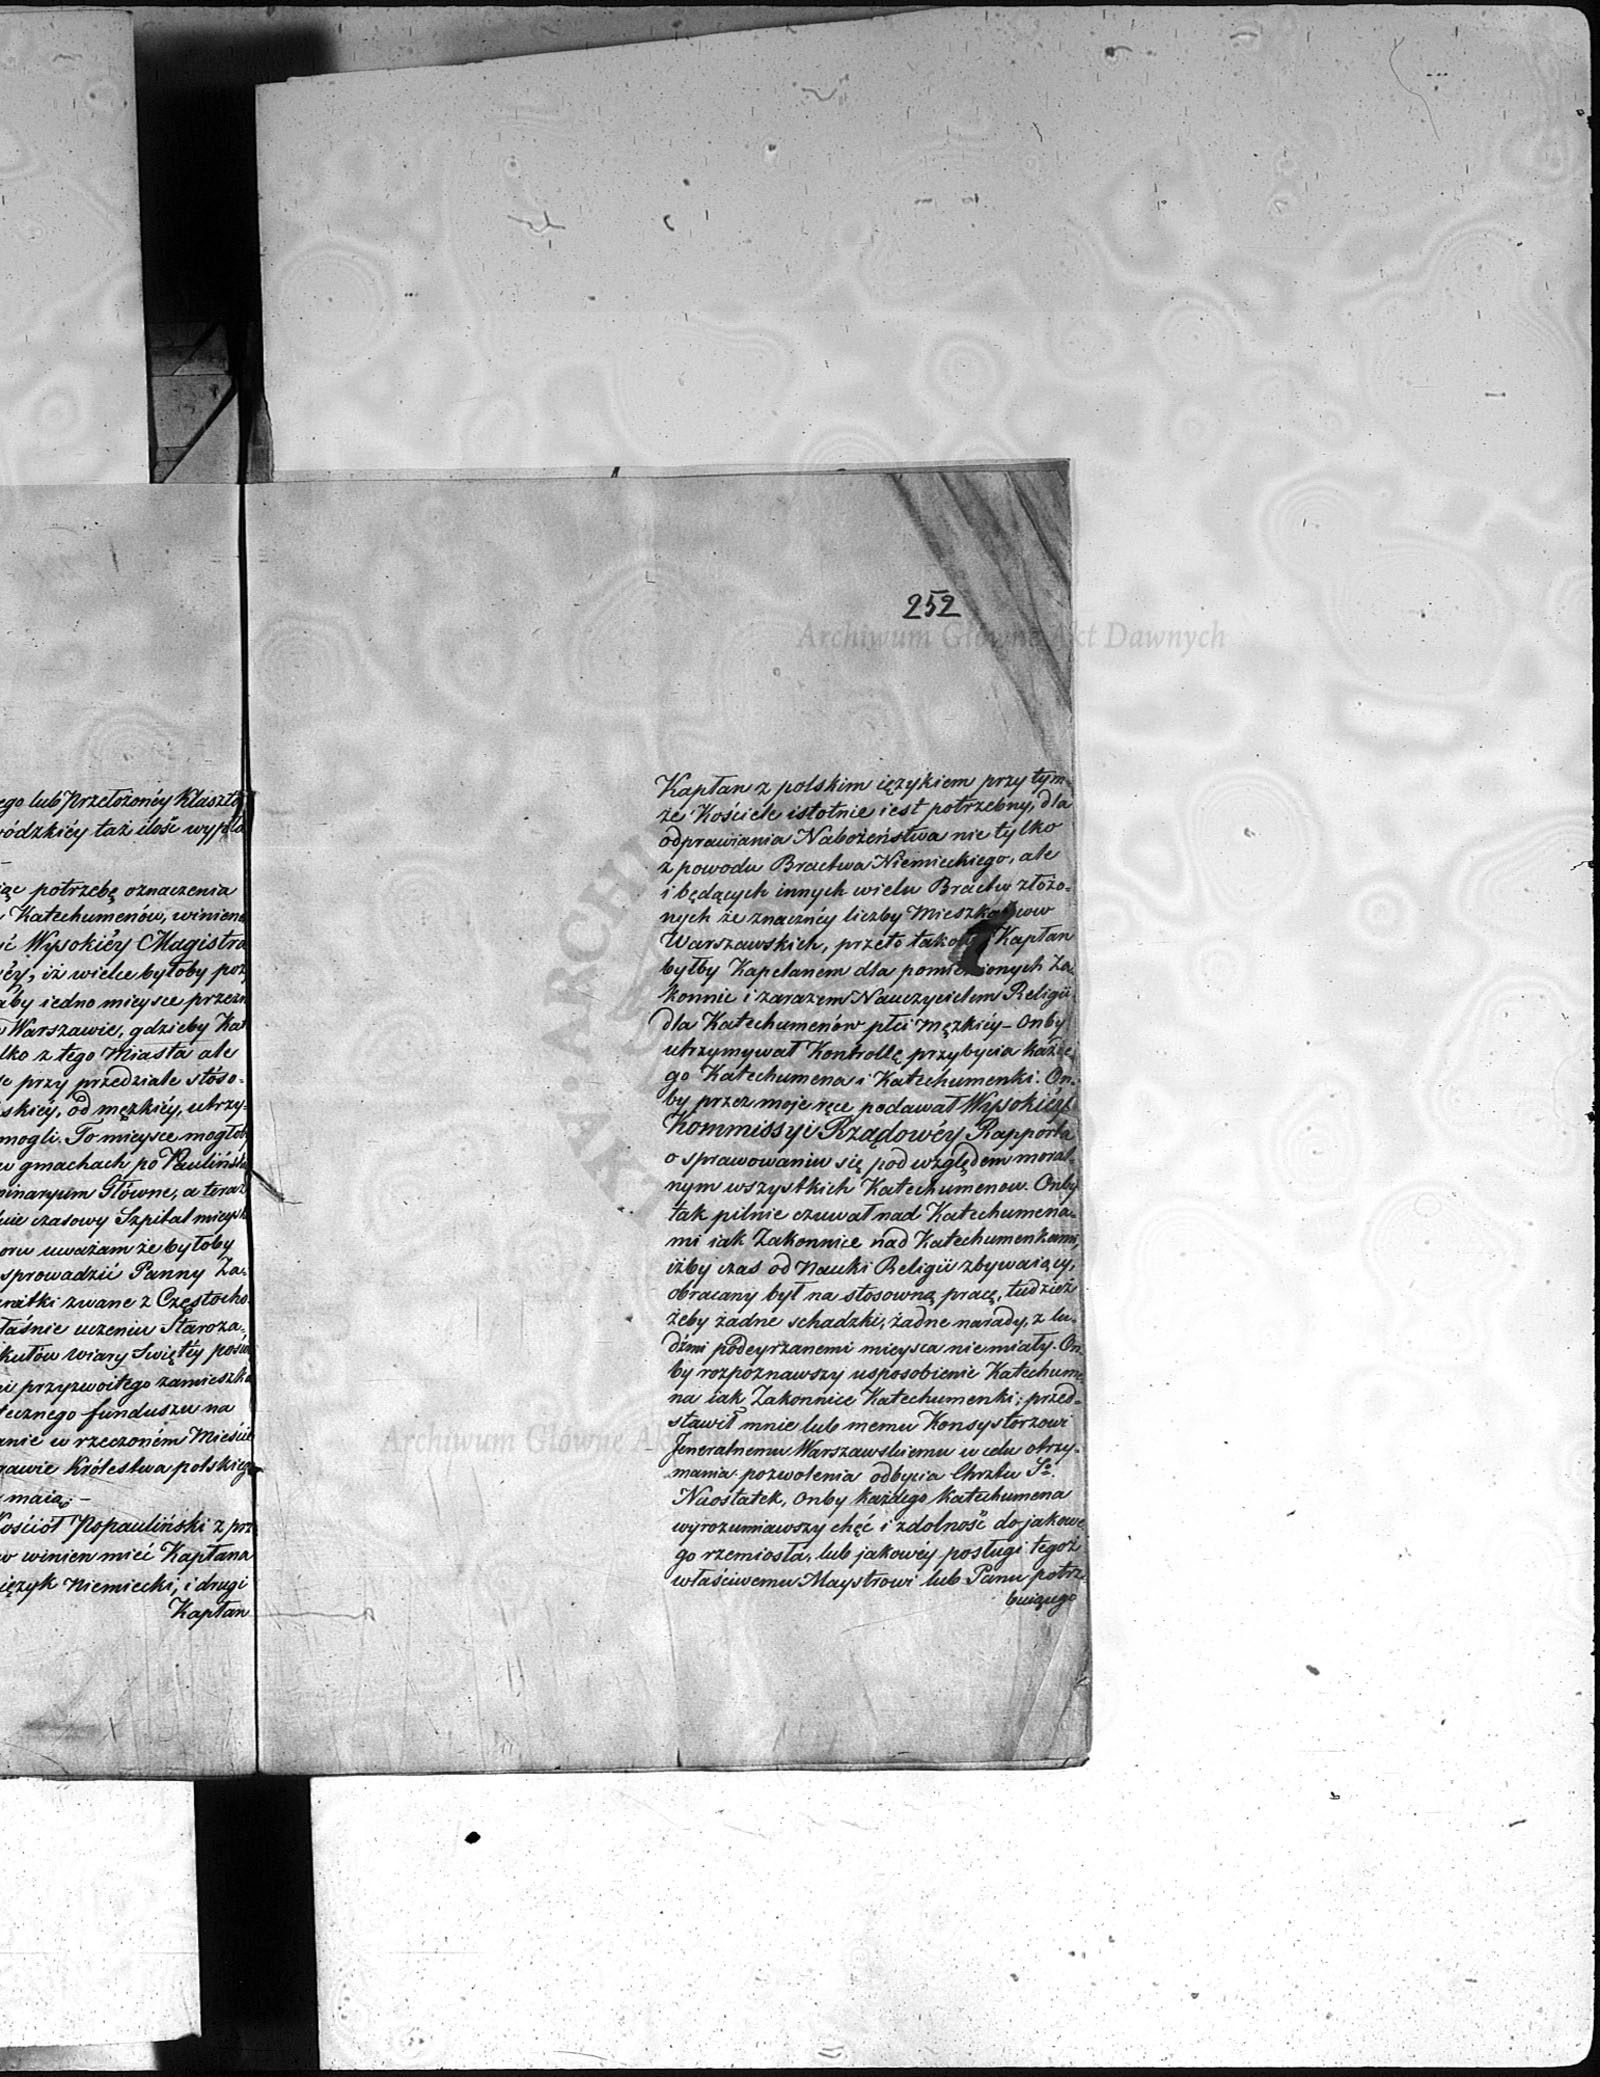 ego lub Przełożonéy Klaszto
wódzkiéy taż ilość wypła
iąc potrzebę oznaczenia
Katechumenów, winiene
ić Wysokiéy Magistra
éy, iż wielce byłoby poż
aby iedno mieysce przezn
Warszawie, gdzieby Kat
lko z tego Miasta ale
se przy przedziale stóso-
skiéy, od męzkiéy, utrzy-
mogli. To mieysce mogłob
w gmachach po Paulińsk
minaryum Główne, a teraz
nie czasowy Szpital mieysk
oru uważam że byłoby
sprowadzić Panny Za-
anitki zwane z Częstocho
łaśnie uczeniu Staroza-
kułów wiary Swiętéy pośw
i przyzwoitego zamieszka
tecznego funduszu na
anie w rzeczoném Mieście
rawie Królestwa polskieg
maią. –
Kościół Popauliński z prz
w winien mieć Kapłana
ięzyk Niemiecki, i drugi
Kapłan
252
Kapłan z polskim ięzykiem przy tym-
że Kościele istotnie iest potrzebny, dla
odprawiania Nabożeństwa nie tylko
z powodu Bractwa Niemieckiego, ale
i będących innych wielu Bractw złożo-
nych ze znacznéy liczby Mieszkańców
Warszawskich, przeto takowy Kapłan
byłby Kapelanem dla pomienionych Za-
konnic i zarazem Nauczycielem Religii
dla Katechumenów płci męzkiéy – Onby
utrzymywał Kontrollę przybycia każde
go Katechumena i Katechumenki. On-
by przez moje ręce podawał Wysokiéy
Kommissyi Rządowéy Rapporta
o sprawowaniu się pod względem moral-
nym wszystkich Katechumenow. Onby
tak pilnie czuwał nad Katechumena-
mi iak Zakonnice nad Katechumenkami,
iżby czas od Nauki Religii zbywaiący,
obracany był na stosowną pracę, tudzież
żeby żadne schadzki, żadne narady, z lu-
dźmi podeyrzanemi mieysca nie miały. On
by rozpoznawszy usposobienie Katechume
na iak Zakonnice Katechumenki; przed-
stawił mnie lub memu Konsystorzowi
Jeneralnemu Warszawskiemu w celu otrzy-
mania pozwolenia odbycia Chrztu Sº.
Naostatek, onby każdego Katechumena
wyrozumiawszy chęć i zdolność do jakowe
go rzemiosła, lub jakowéy posługi tegoż
właściwemu Maystrowi lub Panu potrze
buiącego
Archiwum Główne Akt Dawnych